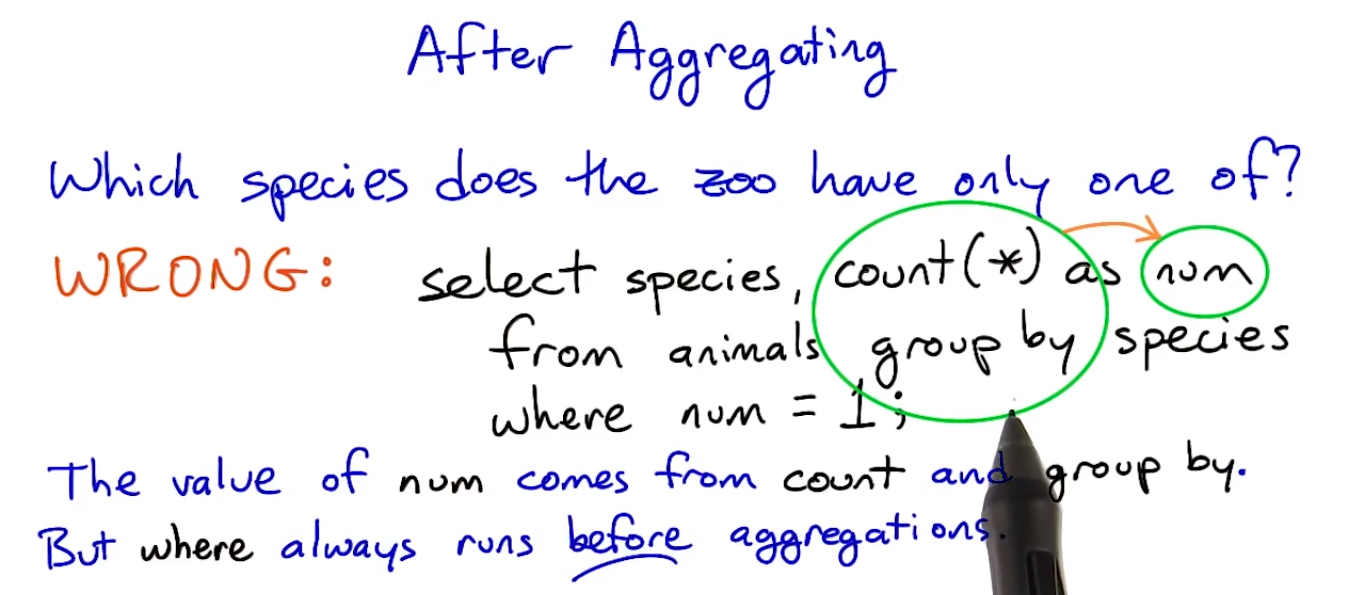 After Aggregating
Which species does the zoo have only one of?
WRONG: select species, count(*) as num
from animals group by species
where num = 1;
The value of num comes from count and group by.
But where always runs before aggregations.